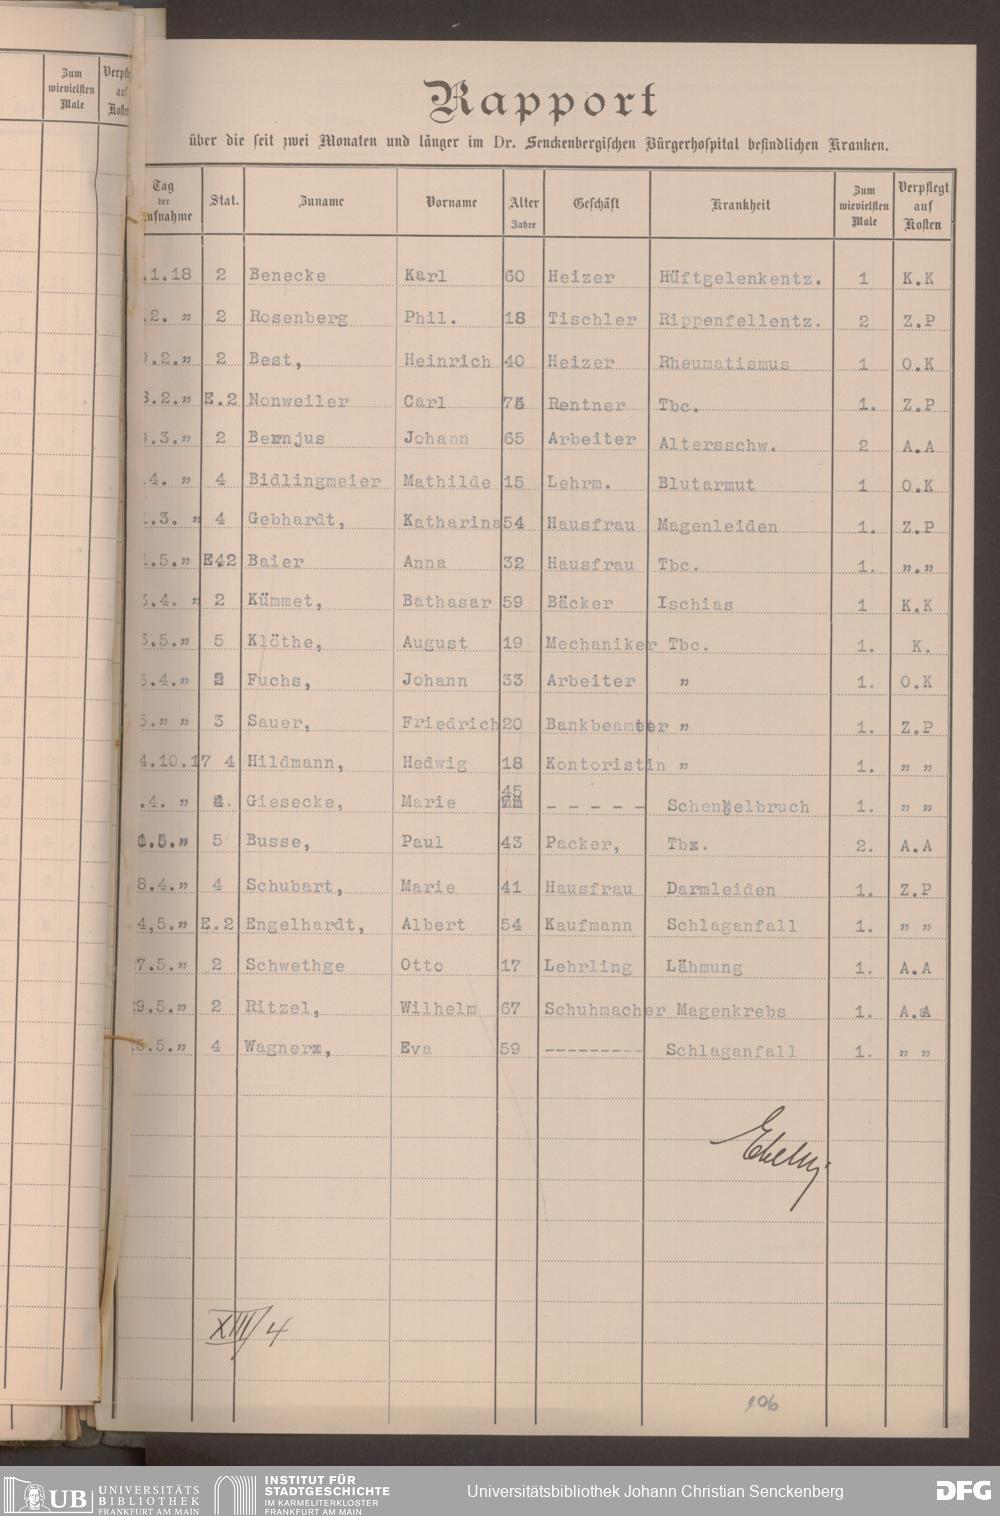 Zum wievielsten Male
Rapport
über die seit zwei Monaten und länger im Dr. Senckenbergischen Bürgerhospital befindlichen Kranken.
Tag der Stat. Zuname Vorname Alter Jahre Geschäft Krankheit Zum wievielsten Male Verpflegt auf Kosten
.1.18 2 Benecke Karl 60 Heizer Hüftgelenkentz. 1 K.K
.2. " 2 Rosenberg Phil. 18 Tischler Rippenfellentz. 2 Z.P
.2." 2 Best, Heinrich 40 Heizer Rheumatismus 1 O.K
3.2." E.2 Nonweiler Carl Rentner Tbc. 1. Z.P
.3." 2 Johann 65 Arbeiter Altersschw. 2 A.A
.4. " 4 Bidlingmeier Mathilde 15 Lehrm. Blutarmut 1 O.K
.3. " 4 Gebhardt, Katharina 54 Hausfrau Magenleiden 1. Z.P
.5." E42 Baier Anna 32 Hausfrau Tbc. 1. "."
5.4. " 2 Kümmet, Bathasar 59 Bäcker Ischias 1 K.K
3.5." 5 Klöthe, August 19 Mechaniker Tbc. 1. K.
5.4." Fuchs, Johann 33 Arbeiter " 1. O.K
5." " 3 Sauer, Friedrich 20 Bankbeamter " 1. Z.P
4.10.17 4 Hildmann, Hedwig 18 Kontoristin " 1. " "
.4. " Giesecke, Marie 45 - - - - - Schenkelbruch 1. " "
.5." 5 Busse, Paul 43 Packer, Tbx. 2. A.A
8.4." 4 Schubart, Marie 41 Hausfrau Darmleiden 1. Z.P
4,5." E.2 Engelhardt, Albert 54 Kaufmann Schlaganfall 1. " "
7.5." 2 Schwethge Otto 17 Lehrling Lähmung 1. A.A
29.5." 2 Ritzel, Wilhelm 67 Schuhmacher Magenkrebs 1. A.A
.5." 4 Wagnerx, Eva 59 --------- Schlaganfall 1. " "
XIII/4
106
UB UNIVERSITÄTS BIBLIOTHEK FRANKFURT AM MAIN
INSTITUT FÜR STADTGESCHICHTE IM KARMELITERKLOSTER FRANKFURT AM MAIN
Universitätsbibliothek Johann Christian Senckenberg
DFG